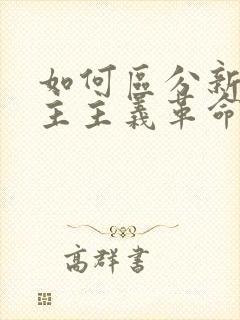 如何區分新
主主義革命
高群書